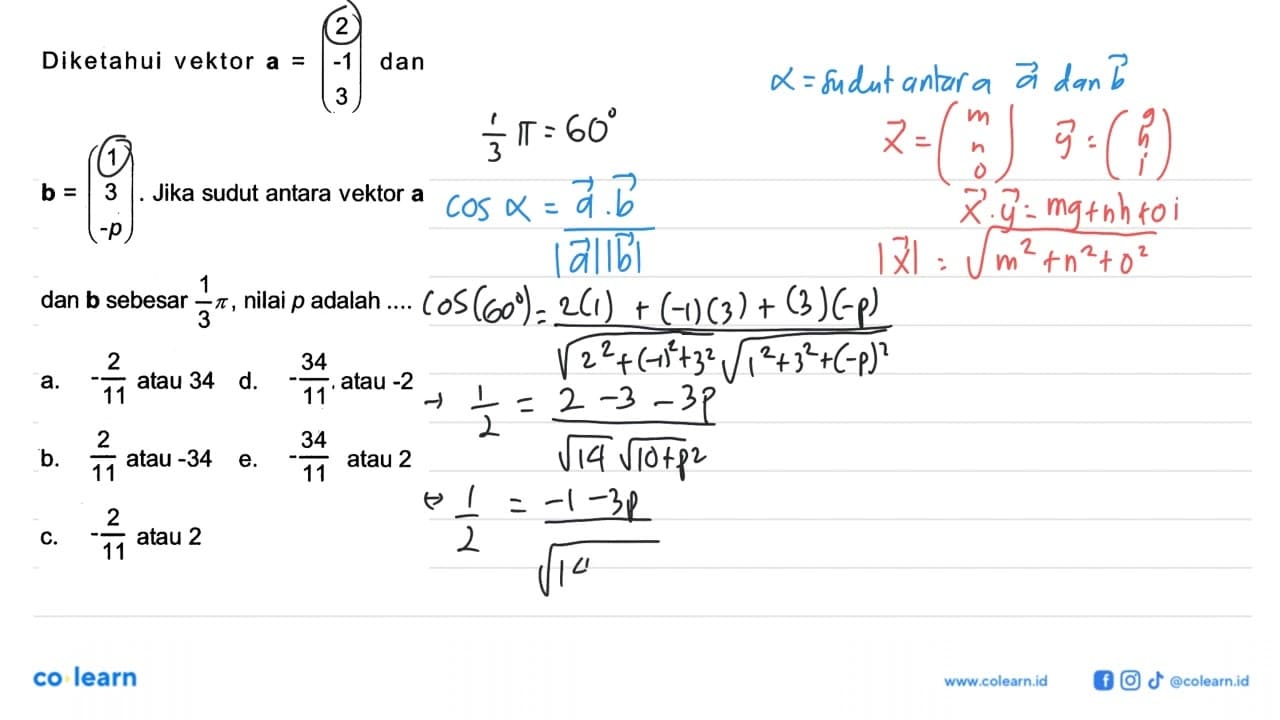 Diketahui vektor a = (2 -1 3) dan
b = (1 3 -p). Jika sudut antara vektor a
dan b sebesar 1/3 π, nilai p adalah ....
a. -2/11 atau 34 d. -34/11, atau -2
b. 2/11 atau -34 e. -34/11 atau 2
c. -2/11 atau 2
1/3 π = 60°
cos α = a⃗ . b⃗ / |a⃗||b⃗|
cos(60°) = 2(1) + (-1)(3) + (3)(-p) / √2²+(-1)²+3² √1²+3²+(-p)²
→ 1/2 = 2 - 3 - 3p / √14 √10+p²
⇔ 1/2 = -1 - 3p / √14
α = sudut antara a⃗ dan b⃗
x⃗ = (m n o) y⃗ = (g h i)
x⃗ . y⃗ = mg + nh + oi
|x⃗| = √m² + n² + o²
co learn
www.colearn.id
@colearn.id